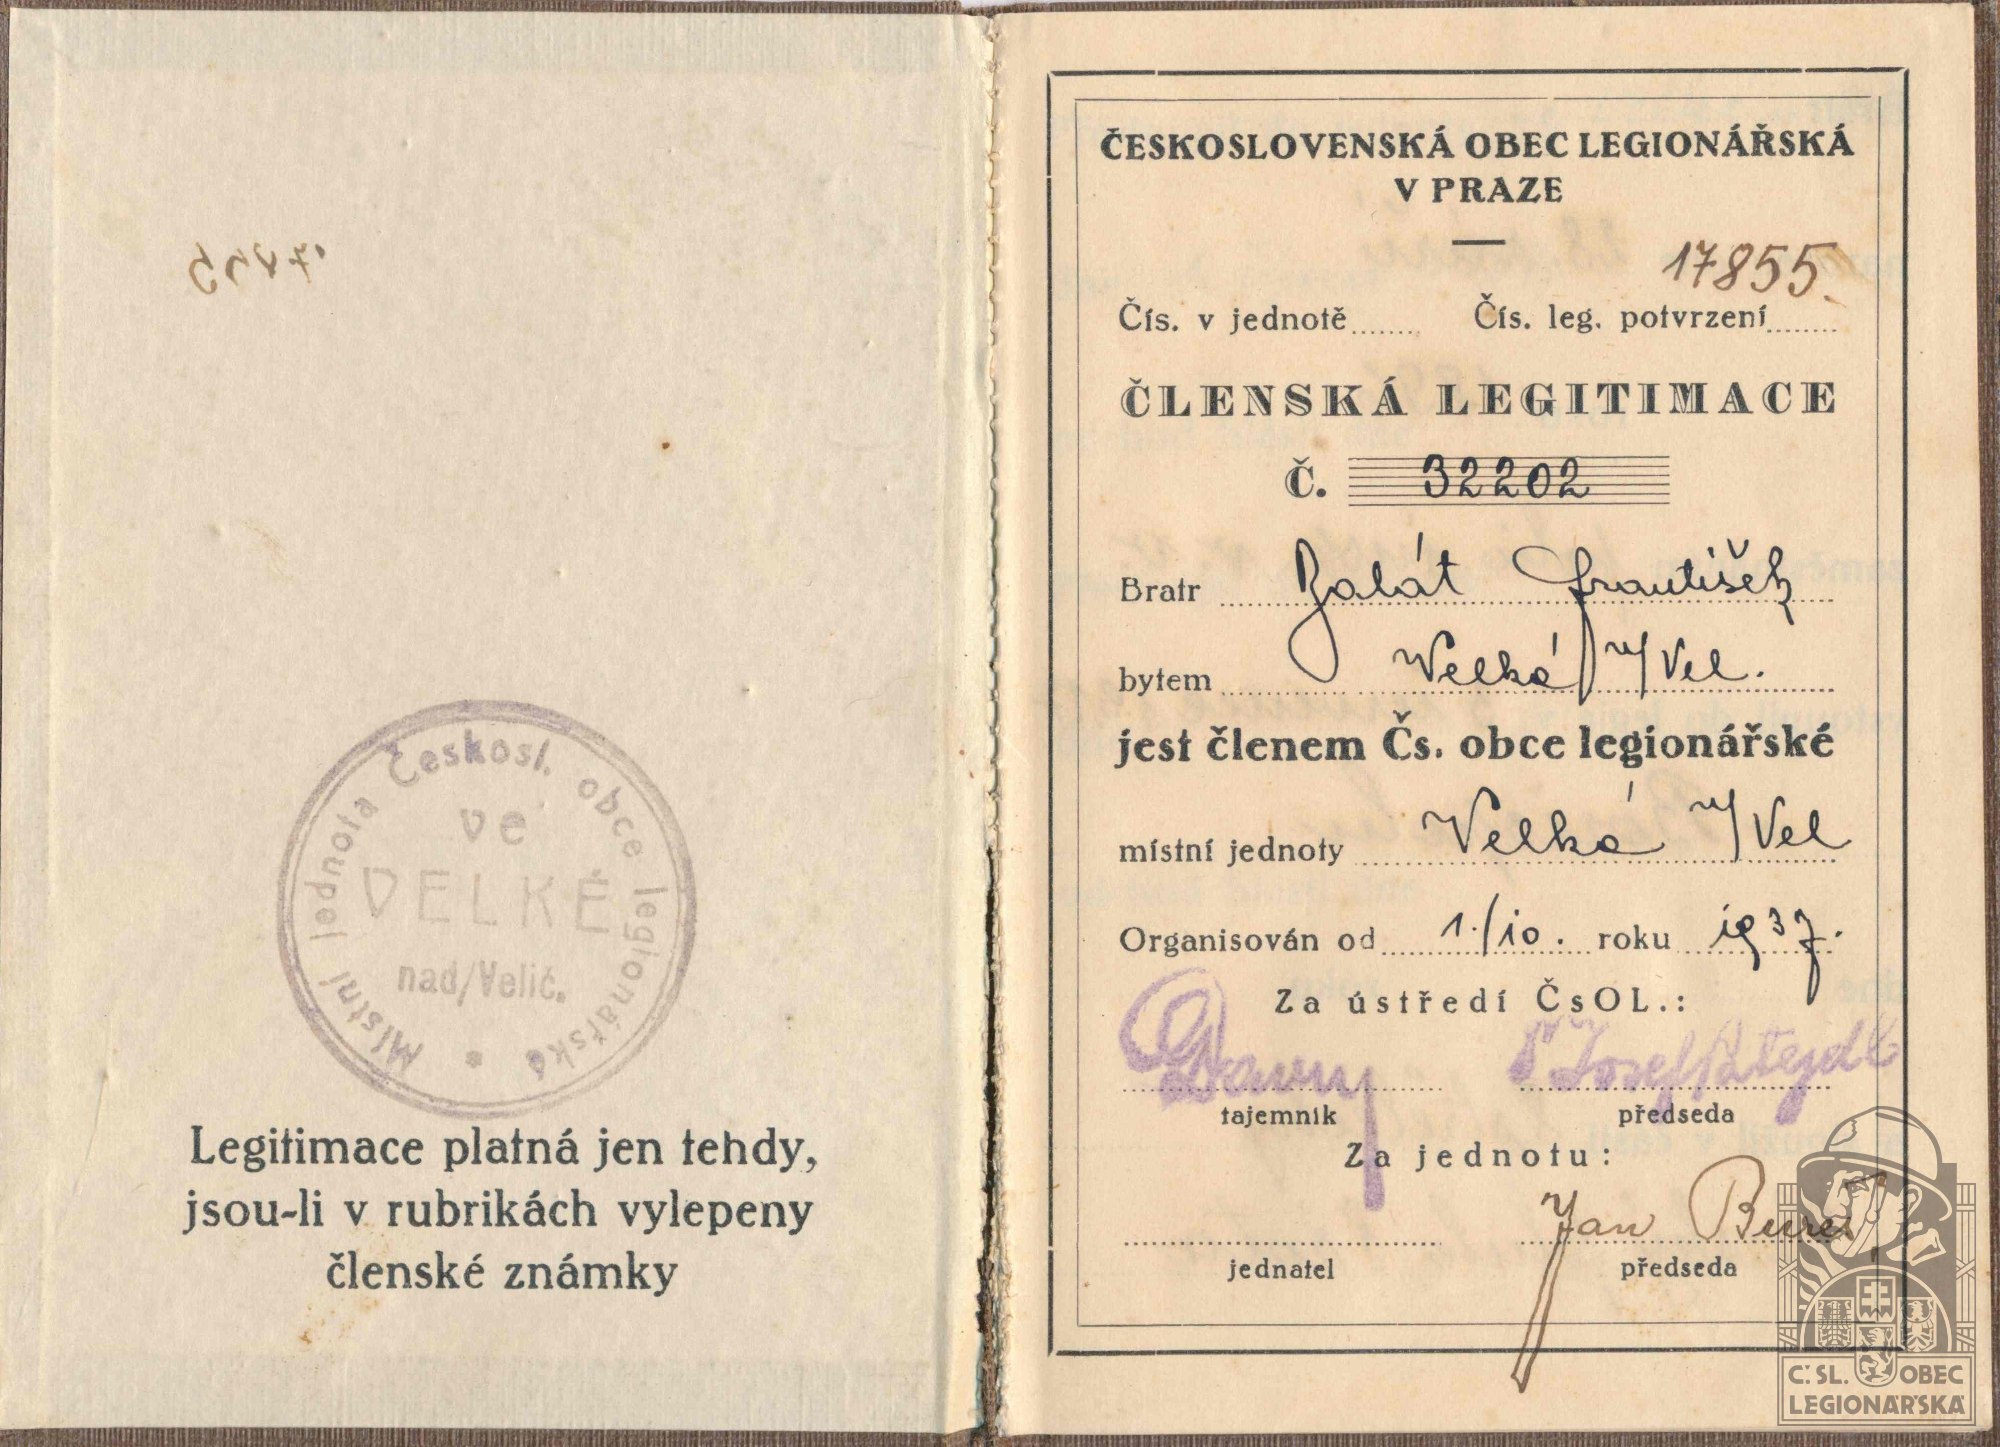 Místní jednota Českosl. obce legionářské
ve
VELKÉ
nad/Velič.
Legitimace platná jen tehdy,
jsou-li v rubrikách vylepeny
členské známky
ČESKOSLOVENSKÁ OBEC LEGIONÁŘSKÁ
V PRAZE
17855
Čís. v jednotě........ Čís. leg. potvrzení........
ČLENSKÁ LEGITIMACE
Č. 32202
Bratr Balát František
bytem Velká n/Vel.
jest členem Čs. obce legionářské
místní jednoty Velká n/Vel
Organisován od 1./10. roku 1937.
Za ústředí ČsOL.:
Josef
tajemník předseda
Za jednotu:
Jan Bureš
jednatel předseda
Č.SL. OBEC
LEGIONÁŘSKÁ